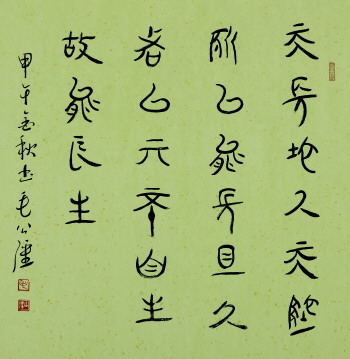 天長地久天地
所以能長且久
者以亓不自生
故能長生
甲午金秋书毛公